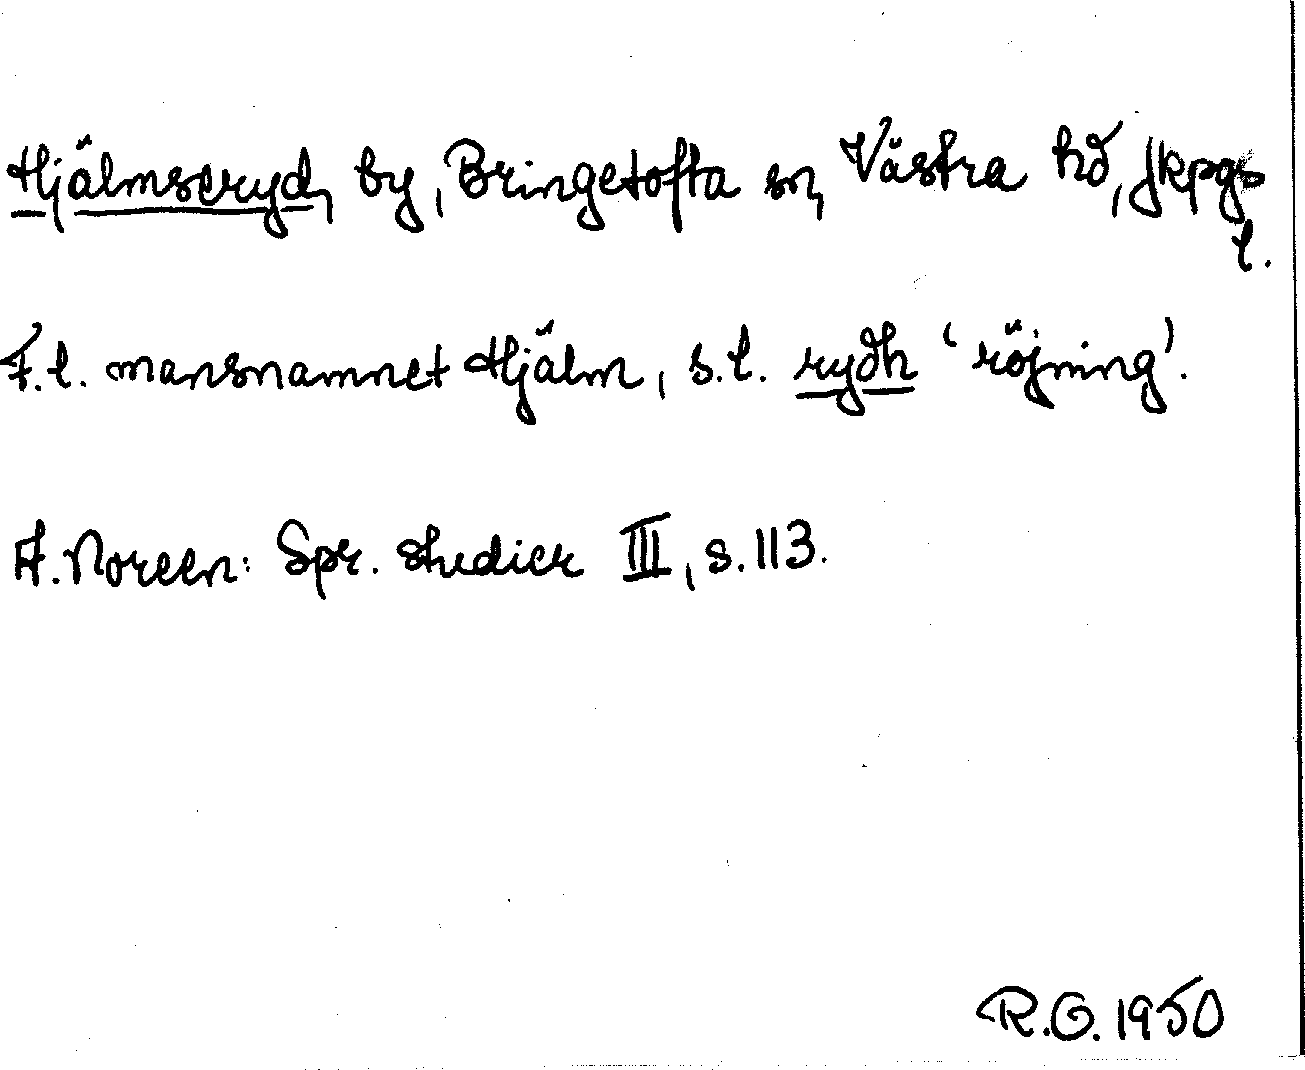 Hjälmseryd, by, Bringetofta sn, Västra hd, Jkpgs
l.
F.l. mansnamnet Hjälm, s.l. rydh 'röjning'.
A. Noreen: Spr. studier III, s. 113.
R.G. 1950